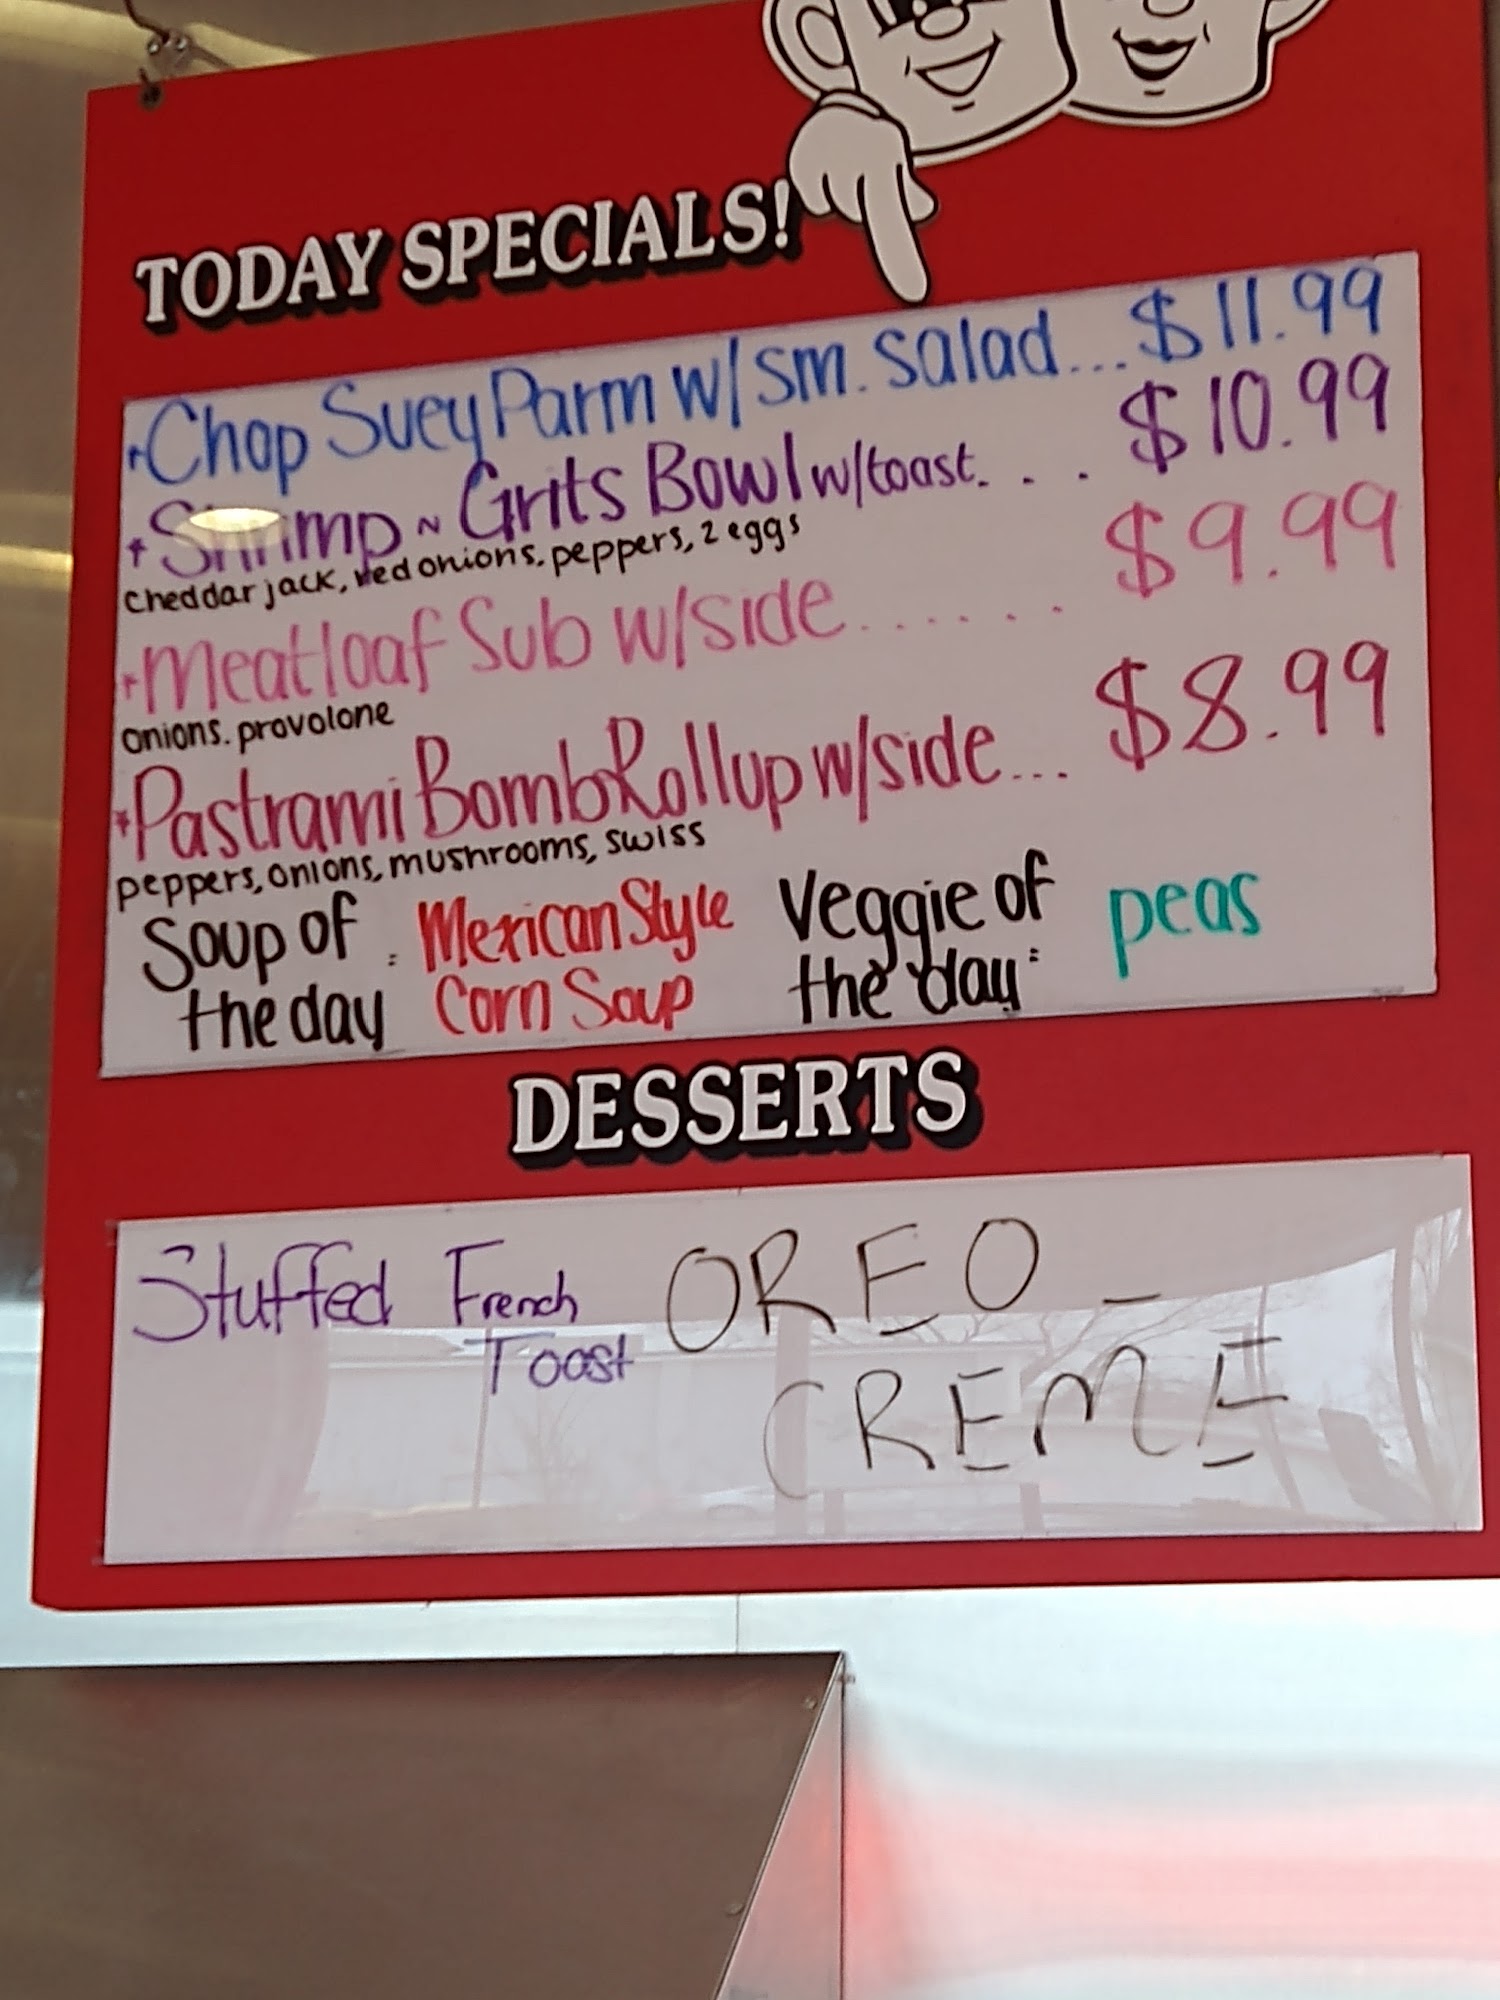 TODAY SPECIALS!
Chop Suey Parm w/sm. salad... $11.99
Shrimp ~ Grits Bowl w/toast. . . $10.99
Cheddar jack, red onions. peppers, 2 eggs
Meatloaf Sub w/side....... $9.99
onions. provolone
*Pastrami Bomb Rollup w/side... $8.99
peppers, onions, mushrooms, swiss
Soup of the day : Mexican Style Corn Soup
Veggie of the day: peas
DESSERTS
Stuffed French Toast
OREO -
CREME